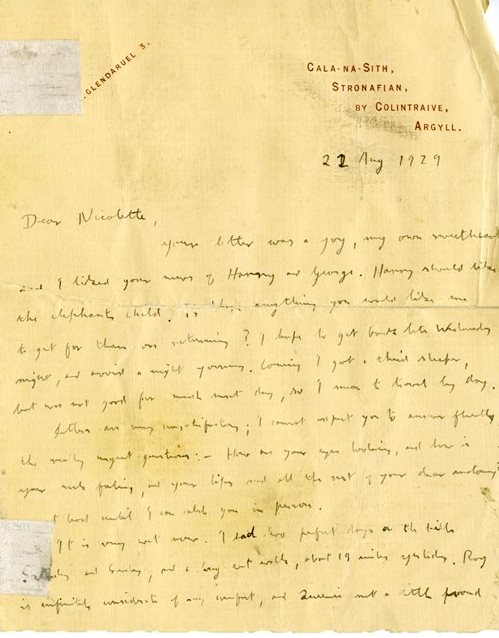 . GLENDARUEL 3.
CALA-NA-SITH,
STRONAFIAN,
BY COLINTRAIVE,
ARGYLL.
22 Aug 1929
Dear Nicolette,
Your letter was a joy, my own sweetheart
and I liked your news of Harvey and George. Harvey should like
the elephants child. Is there anything you would like me
to get for them on returning? I hope to get back late Wednesday
night, and avoid a night journey. Coming I got a third sleeper,
but was not good for much next day, so I mean to travel by day.
Letters are very unsatisfactory; I cannot expect you to answer fluently
the really urgent questions:— How are your eyes looking, and how is
your neck feeling, and your lips and all the rest of your dear anatomy
but until I can catch you in person.
It is very wet now. I had two perfect days on the hills
and Sunday, and a long wet walk, about 19 miles yesterday. Roy
is infinitely considerate of my comfort, and not a little proud